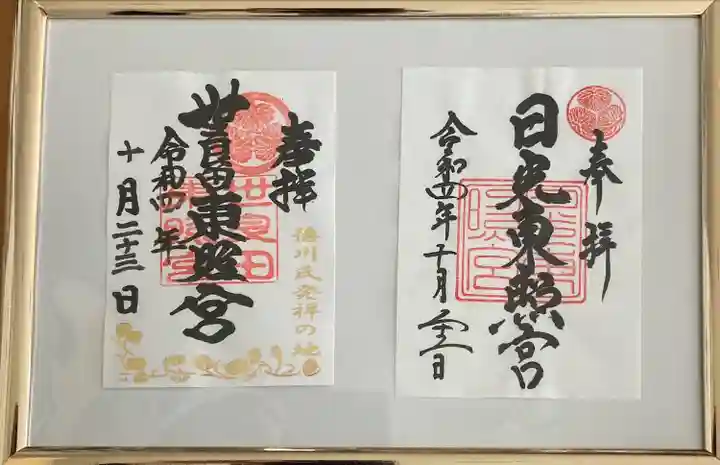 奉拝
日光東照宮
令和四年十月二十二日
奉拝
徳川氏発祥の地
世良田東照宮
世良田
東照宮
令和四年
十月二十三日